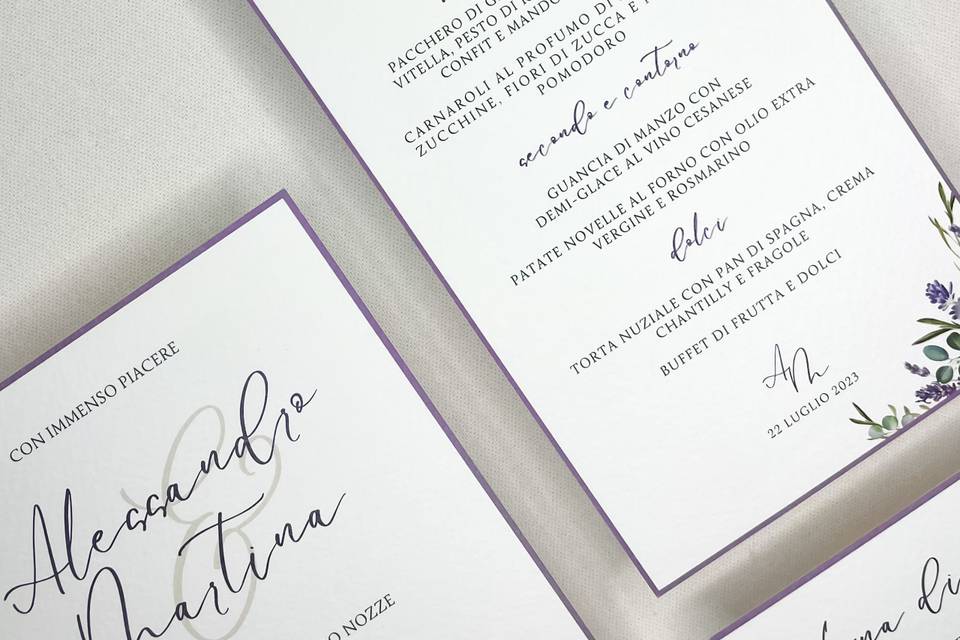 PACCHERO DI G
VITELLA, PESTO DI
CONFIT E MANDO
CARNAROLI AL PROFUMO DI
ZUCCHINE, FIORI DI ZUCCA E
POMODORO
secondo e contorno
GUANCIA DI MANZO CON
DEMI-GLACE AL VINO CESANESE
PATATE NOVELLE AL FORNO CON OLIO EXTRA
VERGINE E ROSMARINO
dolci
TORTA NUZIALE CON PAN DI SPAGNA, CREMA
CHANTILLY E FRAGOLE
BUFFET DI FRUTTA E DOLCI
AM
22 LUGLIO 2023
CON IMMENSO PIACERE
Alessandro
&
Martina
O NOZZE
di